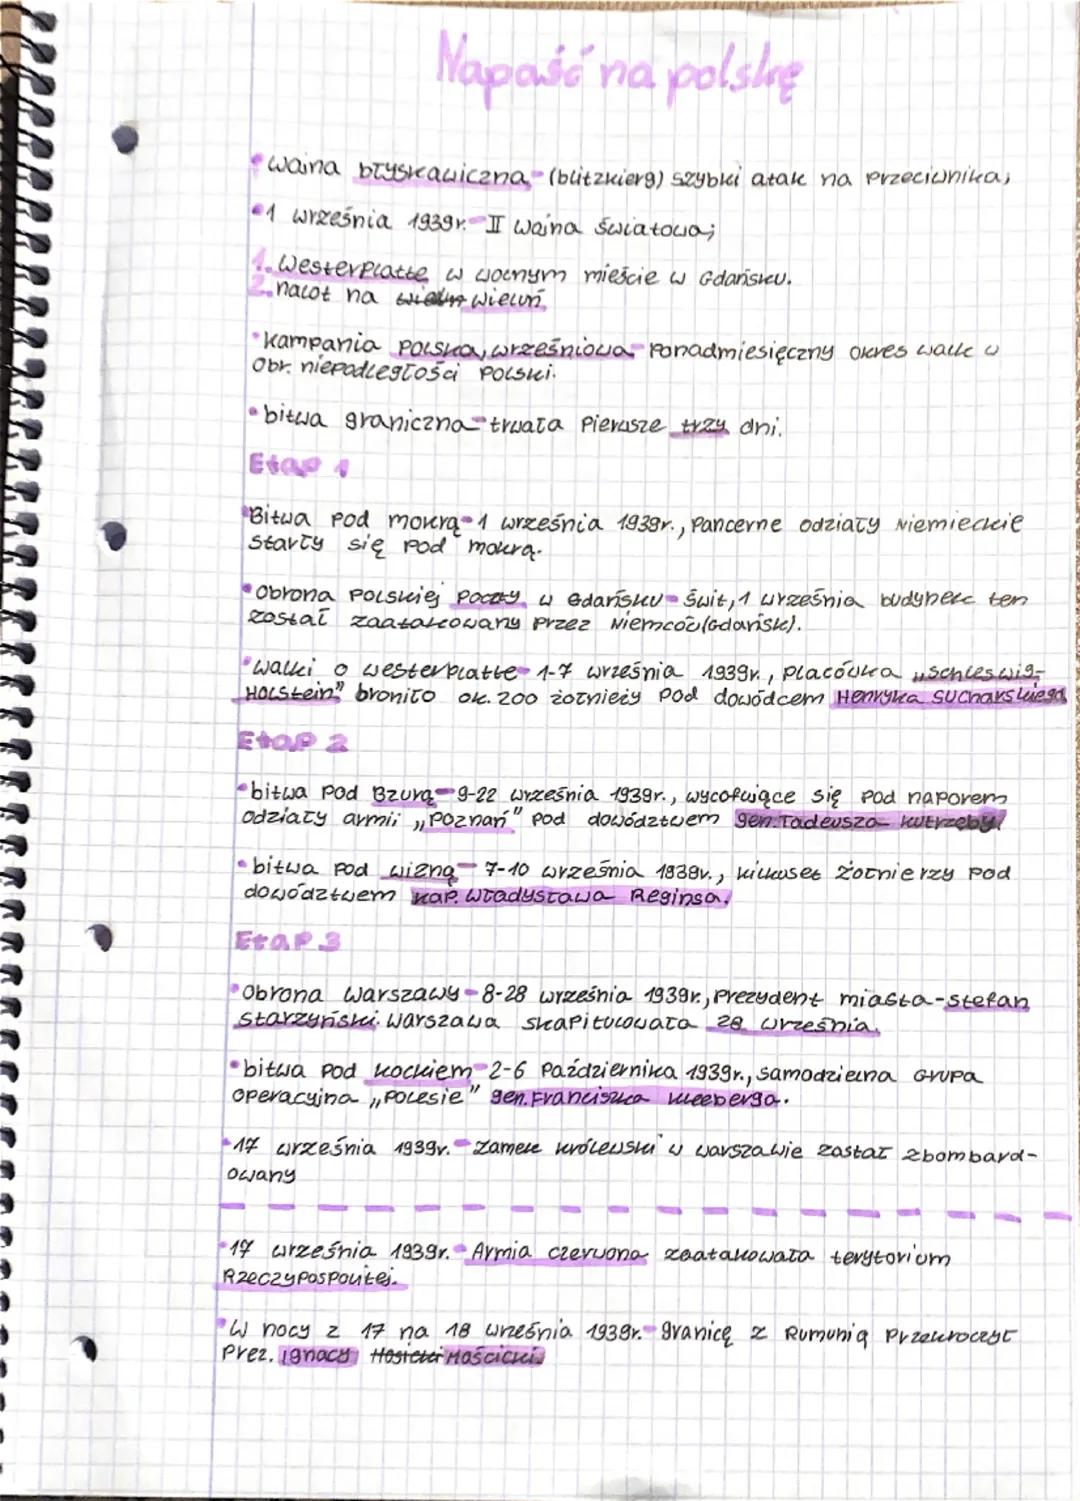 Napaść na polskę
• wojna błyskawiczna - (blitzkierg) szybki atak na przeciwnika;
• 1 września 1939r. - II wojna światowa;
1. Westerplatte w wolnym mieście w Gdańsku.
2. nalot na wieluń
• kampania polska, wrześniowa - ponadmiesięczny okres walk w
obr. niepodległości Polski.
• bitwa graniczna - trwała pierwsze trzy dni.
Etap 1
• Bitwa pod mokrą - 1 września 1939r., pancerne odziały Niemieckie
starły się pod mokrą.
• Obrona polskiej poczty w Gdańsku - świt, 1 września budynek ten
został zaatakowany przez Niemców (Gdańsk).
• walki o westerplatte - 1-7 września 1939r., placówka „schleswig-
Holstein" broniło ok. 200 żołnieży pod dowódcem Henryka Sucharskiego
Etap 2
• bitwa pod Bzurą - 9-22 września 1939r., wycofujące się pod naporem
odziały armii „Poznań" pod dowództwem gen. Tadeusza Kutrzeby.
• bitwa pod wizną - 7-10 września 1939r., kilkuset żołnierzy pod
dowództwem kap. Władysława Reginsa.
Etap 3
• Obrona Warszawy - 8-28 września 1939r., Prezydent miasta - stefan
starzyński. Warszawa skapitulowała 28 września.
• bitwa pod kockiem - 2-6 października 1939r., samodzielna Grupa
operacyjna „Polesie" gen. Franciszka kleeberga.
• 17 września 1939r. - zamek królewski w warszawie został zbombard-
owany
• 17 września 1939r. - Armia czerwona zaatakowała terytorium
Rzeczypospolitej.
• W nocy z 17 na 18 września 1939r. - granicę z Rumunią przekroczył
Prez. Ignacy Mościcki.